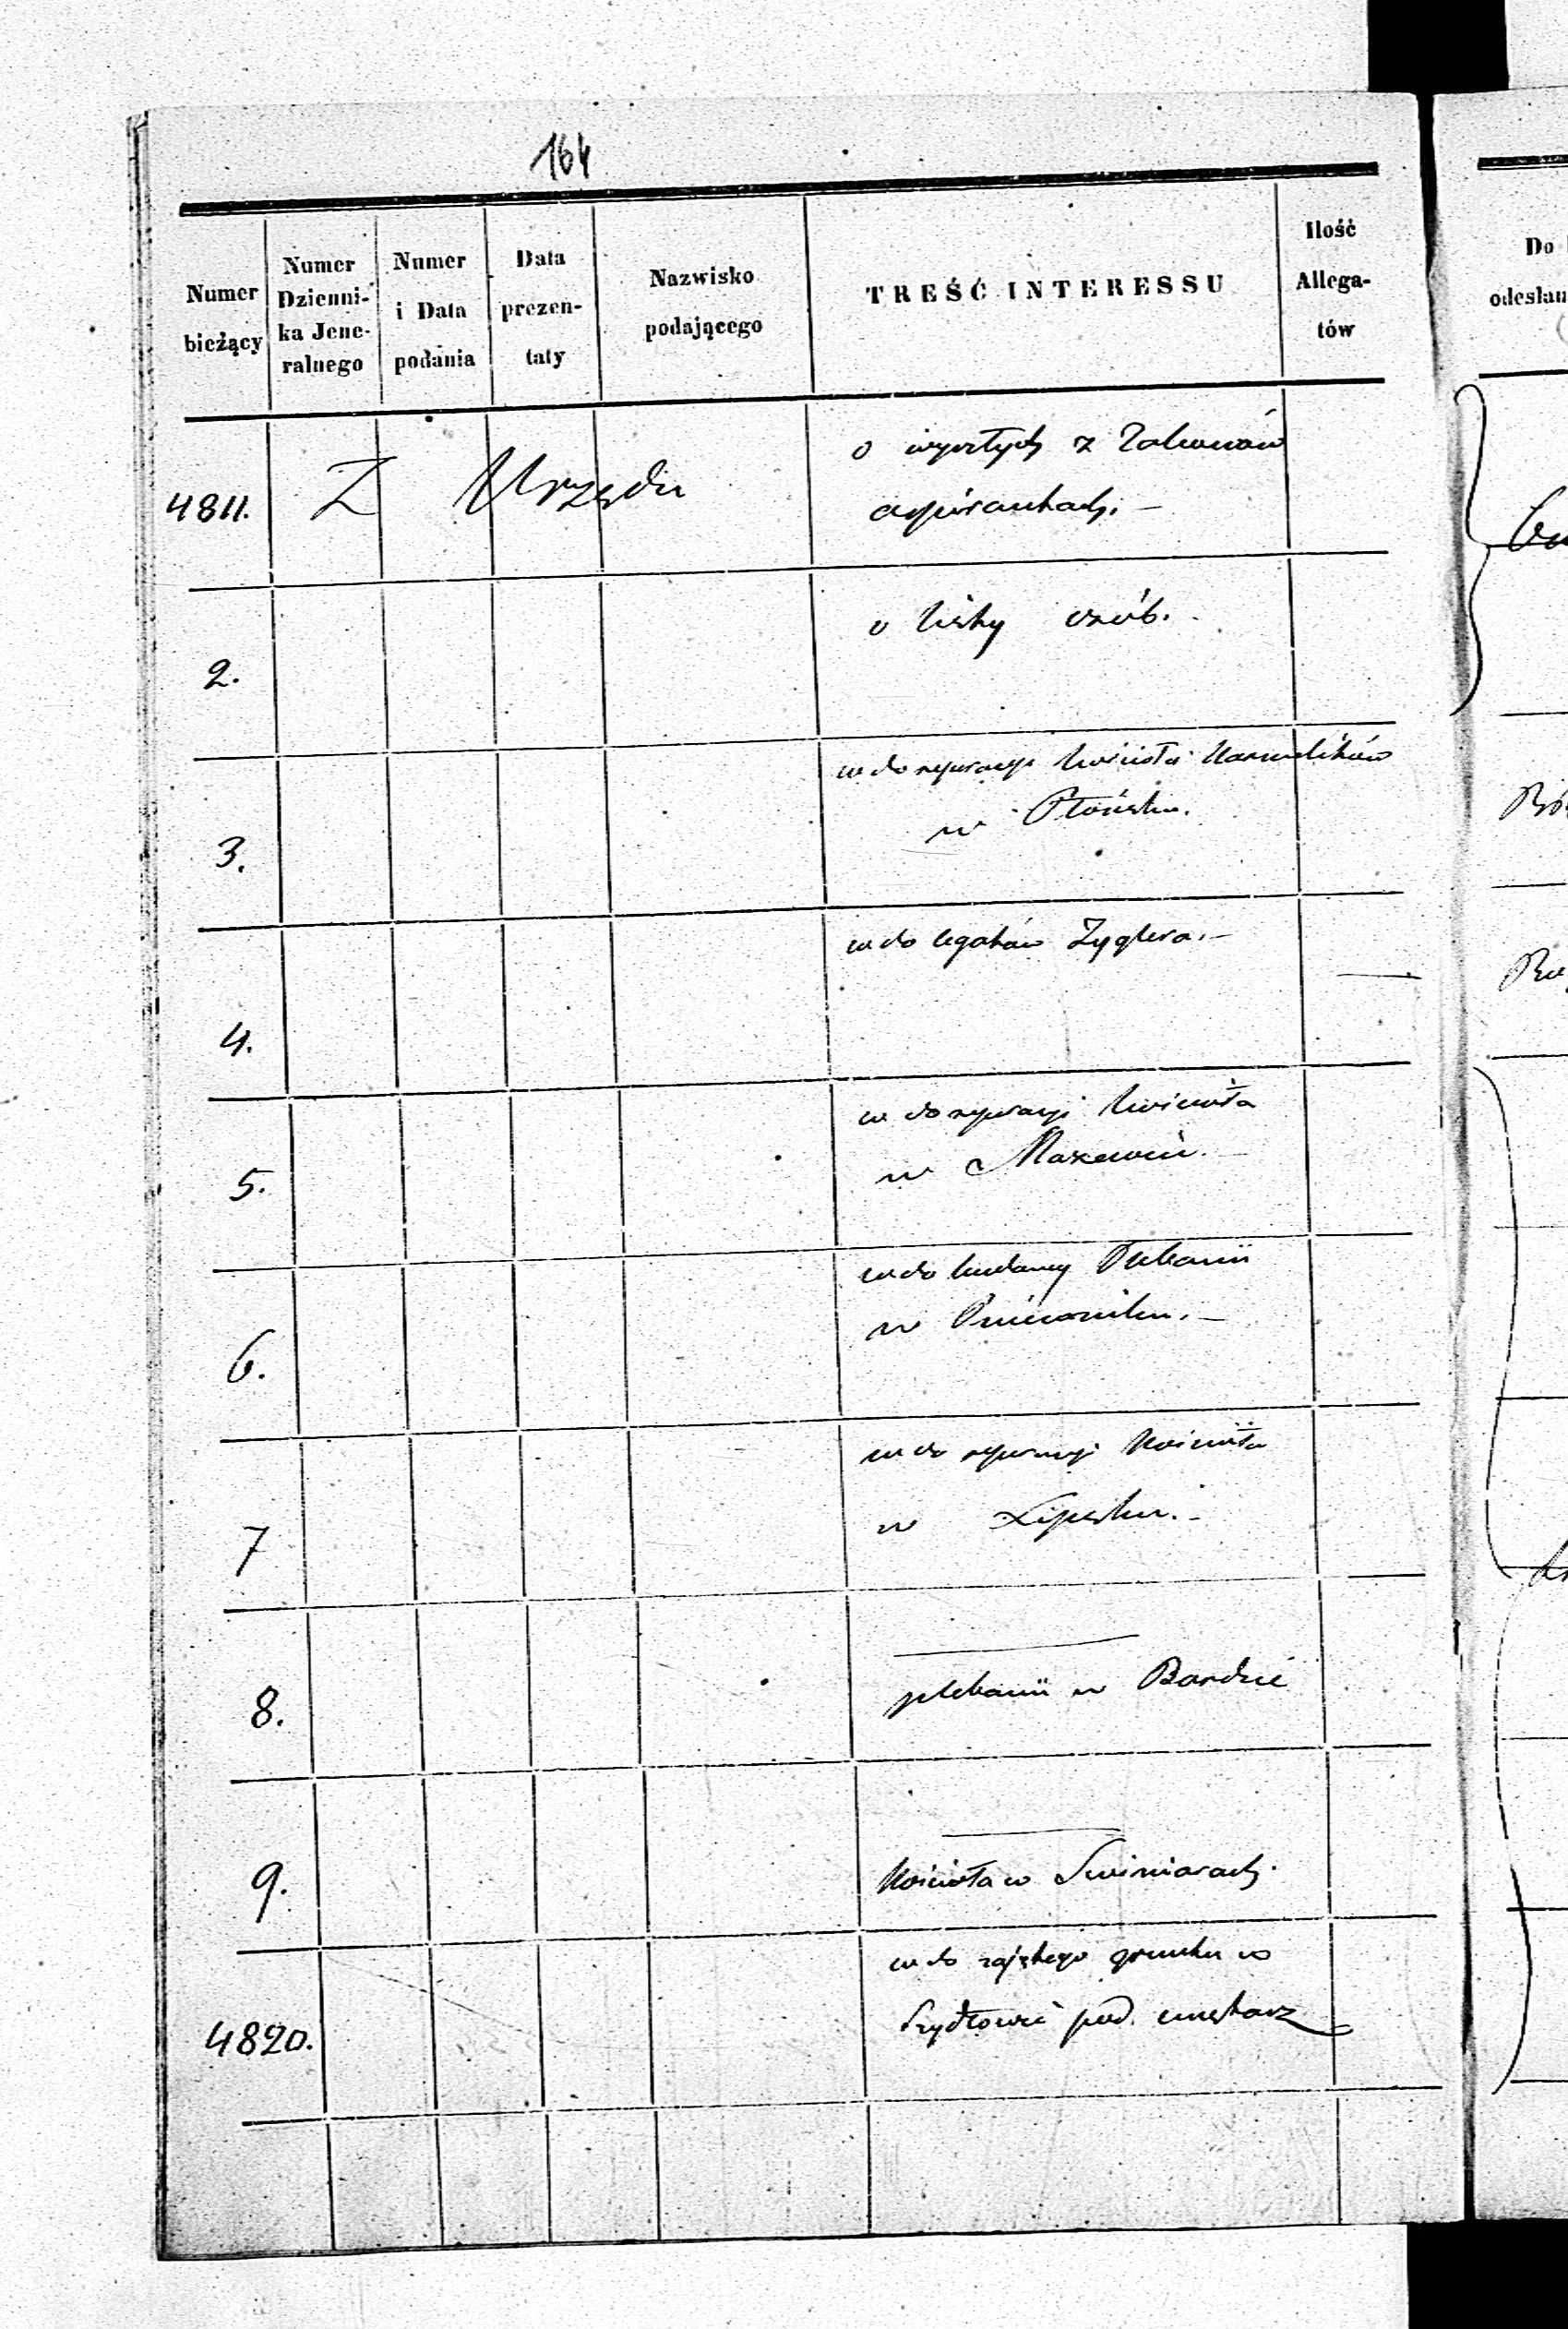 164
Numer bieżący
Numer Dzienni-ka Jene-ralnego
Numer i Data podania
Data prezen-taty
Nazwisko podającego
TREŚĆ INTERESSU
Ilość Allega-tów
Do
odesłan
4811. Z Urzędu o wyszłych z Zakonów
aspirantach. —
2. o listy osób.
w do reperacyi kościoła Karmelików
3. w Płońsku.
4. w do legatów Zyglera. —
w do reperacyi kościoła
5. w
w do budowy Plebanii
6. w Pniewniku. —
w do reperacyi kościoła
7 w Lipsku. —
8. plebanii w Bardzie
9. kościoła w Swiniarach
w do zajętego gruntu w
4820. Szydłowie pod cmętarz